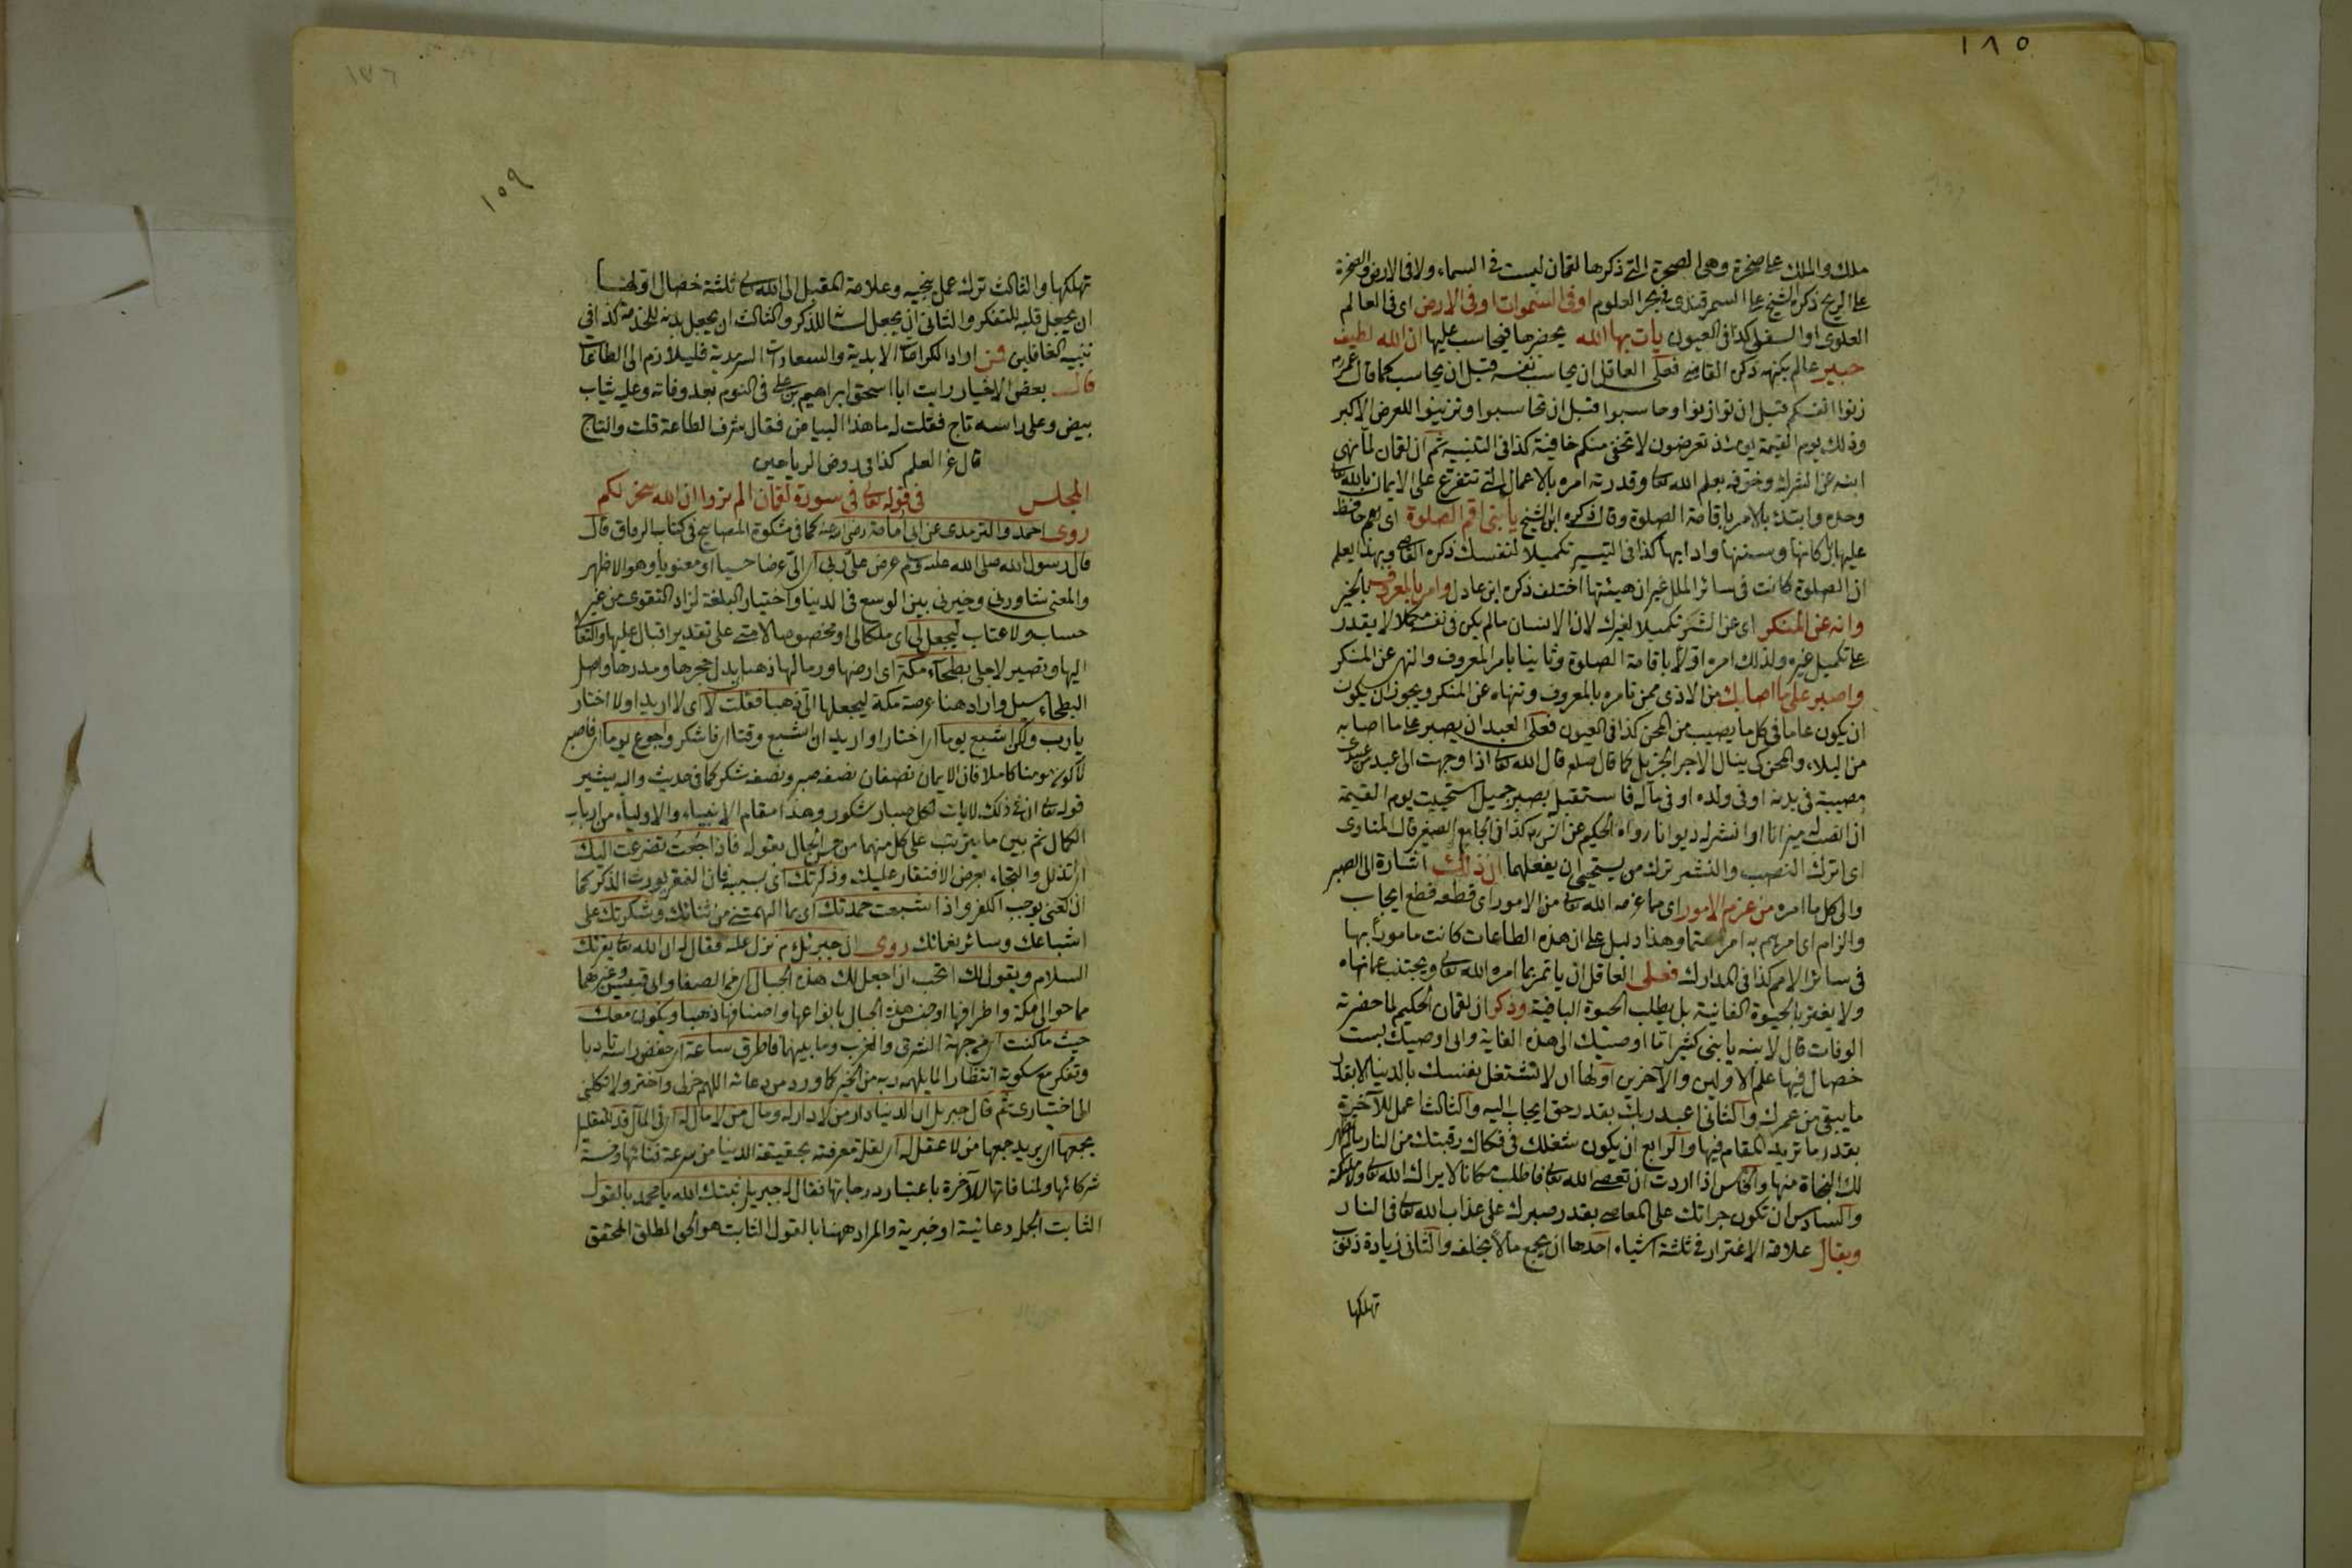 ١٨٥
ملك والملك على صخرة وهى الصخرة التى ذكرها لقمان ليست فى السماء ولا فى الارض والصخرة
على الريح ذكره الشيخ على السمرقندى فى بحر العلوم او فى السموات او فى الارض اى فى العالم
العلوى او السفلى كذا فى العيون يأت بها الله يحضرها فيحاسب عليها ان الله لطيف
خبير عالم بكنهه ذكره القاضى فعلى العاقل ان يحاسب نفسه قبل ان يحاسب كما قال عمر رض
زنوا انفسكم قبل ان توازنوا وحاسبوا قبل ان تحاسبوا وتزينوا للعرض الاكبر
وذلك يوم القيمة يومئذ تعرضون لا تخفى منكم خافية كذا فى التنبيه ثم ان لقمان لما نهى
ابنه عن الشرك وخوفه بعلم الله تعا وقدرته امره بالاعمال التى تتفرع على الايمان بالله تعا
وحده وابتدئ بالامر باقامة الصلوة وقال ذكره ابن الشيخ يا بنى اقم الصلوة اى بعم حافظ
عليها باركانها وسننها وادابها كذا فى التيسير تكميلا لنفسك ذكره القاضى وبهذا يعلم
ان الصلوة كانت فى سائر الملل غير ان هيئتها اختلف ذكره ابن عادل وامر بالمعروف بالخير
وانه عن المنكر اى عن الشر تكميلا لغيرك لان الانسان ما لم يكن فى نفسه مكملا لا يقدر
على تكميل غيره ولذلك امره اولا باقامة الصلوة وثانيا بامر المعروف والنهى عن المنكر
واصبر على ما اصابك من الاذى ممن تامره بالمعروف وتنهاه عن المنكر ويجوز ان يكون
ان يكون عاما فى كل ما يصيب من المحن كذا فى العيون فعلى العبد ان يصبر على ما اصابه
من البلاء والمحن كى ينال الاجر الجزيل كما قال صلعم قال الله تعا اذا وجهت الى عبد من عبيدى
مصيبة فى بدنه او فى ولده او فى ماله فاستقبل بصبر جميل استحييت يوم القيمة
ان انصب له ميزانا او انشر له ديوانا رواه الحكيم عن انس رض كذا فى الجامع الصغير قال المناوى
اى اترك النصب والنشر ترك من يستحيى ان يفعلهما ان ذلك اشارة الى الصبر
والى كل ما امره من عزم الامور اى مما عزمه الله تعا من الامور اى قطعه قطع ايجاب
والزام اى امرهم به امرا حتما وهذا دليل على ان هذه الطاعات كانت مامورا بها
فى سائر الامم كذا فى المدارك فعلى العاقل ان ياتمر بما امره الله تعا ويجتنب عما نهاه
ولا يغتر بالحيوة الفانية بل يطلب الحيوة الباقية وذكر ان لقمان الحكيم لما حضرته
الوفات قال لابنه يا بنى كثيرا ما اوصيتك الى هذه الغاية وانى اوصيك بست
خصال فيها علم الاولين والآخرين اولها ان لا تشتغل بنفسك بالدنيا الا بقدر
ما يبقى من عمرك والثانى اعبد ربك بقدر حوائجك اليه والثالث اعمل للآخرة
بقدر ما تريد المقام فيها والرابع ان يكون شغلك فى فكاك رقبتك من النار ما لم يظهر
لك النجاة منها والخامس اذا اردت ان تعصى الله تعا فاطلب مكانا لا يراك الله تعا وملائكته
والسادس ان تكون جرأتك على المعاصى بقدر صبرك على عذاب الله تعا فى النار
ويقال علامة الاغترار فى ثلثة اشياء احدها ان يجمع مالا يخلفه والثانى زيادة ذنوب
تهلكها
١٥٩
تهلكها والثالث ترك عمل ينجيه وعلامة المقبل الى الله تعا ثلثة خصال اولها
ان يجعل قلبه للتفكر والثانى ان يجعل لسانه للذكر والثالث ان يجعل بدنه للخدمة كذا فى
تنبيه الغافلين فمن اراد الكرامات الابدية والسعادات السرمدية فليلازم الى الطاعات
قال بعض الاخيار رايت ابا اسحق ابراهيم بن على فى النوم بعد وفاته وعليه ثياب
بيض وعلى راسه تاج فقلت له ما هذا البياض فقال شرف الطاعة قلت والتاج
قال عز العلم كذا فى روض الرياحين
المجلس فى قوله تعا فى سورة لقمان الم تروا ان الله سخر لكم
روى احمد والترمذى عن ابى امامة رضى الله عنه كما فى مشكوة المصابيح فى كتاب الرقاق قال
قال رسول الله صلى الله عليه وسلم عرض على ربى اى الىّ عرضا حسيا او معنويا وهو الاظهر
والمعنى شاورنى وخيرنى بين الوسع فى الدنيا واختيار البلغة لزاد التقوى من غير
حساب ولا عتاب ليجعل لى اى ملكا لى او مخصوصا لامتى على تقدير اقبال عليها والتفات
اليها وتصير لاجلى بطحاء مكة اى ارضها ورمالها ذهبا بدل حجرها ومدرها واصل
البطحاء سيل واراد هنا عرصة مكة ليجعلها الى ذهبا فقلت لا اى لا اريد او لا اختار
يا رب ولكن اشبع يوما اى اختار او اريد ان اشبع وقتا اى فاشكر واجوع يوما اى فاصبر
لاكون مومنا كاملا فان الايمان نصفان نصفه صبر ونصفه شكر كما فى حديث واليه يشير
قوله تعا ان فى ذلك لايات لكل صبار شكور وهذا مقام الانبياء والاولياء من ارباب
الكمال ثم بين ما يترتب على كل منهما من حسن الحال بقوله فاذا جعت تضرعت اليك
اى بتذلل والتجاء بعرض الافتقار عليك وذكرتك اى بسببه فان الفقر يورث الذكر كما
ان الغنى يوجب الكفر واذا شبعت حمدتك اى بما الهمتنى من ثنائك وشكرتك على
اشباعك وسائر نعمائك روى ان جبرئيل م نزل عليه فقال له ان الله تعا يقرئك
السلام ويقول لك اتحب ان اجعل لك هذه الجبال اى من الصفا وابى قبيس وغيرهما
مما حوالى مكة واطرافها او جنس هذه الجبال بانواعها واصنافها ذهبا ويكون معك
حيث ما كنت اى من جهة الشرق والغرب وما بينهما فاطرق ساعة اى خفض راسه تادبا
وتفكر مع سكوته انتظارا لما يلهمه ربه من الخير كما ورد من دعائه اللهم خر لى واختر ولا تكلنى
الى اختيارى ثم قال جبريل ان الدنيا دار من لا دار له ومال من لا مال له اى فى المآل قد للتقليل
يجمعها اى يريد جمعها من لا عقل له اى لقلة معرفته بحقيقة الدنيا من سرعة فنائها وخسة
شركائها ولمنافاتها للآخرة باعتبار درجاتها فقال له جبريل ثبتك الله يا محمد بالقول
الثابت الجملة دعائية او خبرية والمراد ههنا بالقول الثابت هو الحق المطلق المحقق